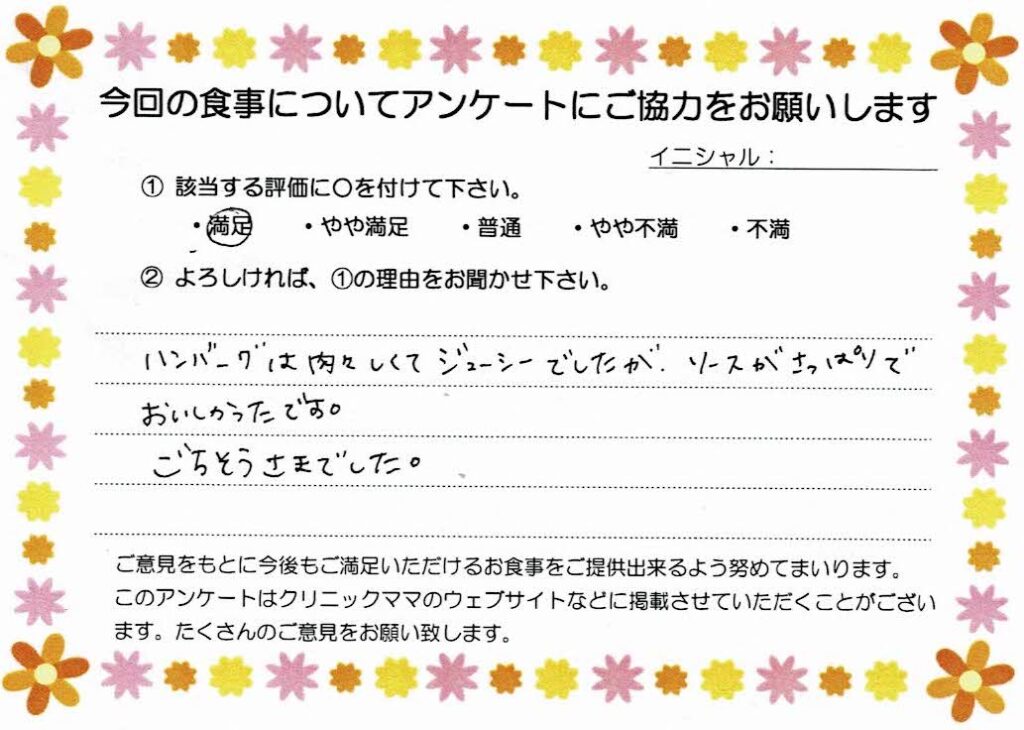 今回の食事についてアンケートにご協力をお願いします
イニシャル：
① 該当する評価に〇を付けて下さい。
・満足 ・やや満足 ・普通 ・やや不満 ・不満
② よろしければ、①の理由をお聞かせ下さい。
ハンバーグは肉々しくてジューシーでしたが、ソースがさっぱりで
おいしかったです。
ごちそうさまでした。
ご意見をもとに今後もご満足いただけるお食事をご提供出来るよう努めてまいります。
このアンケートはクリニックママのウェブサイトなどに掲載させていただくことがござい
ます。たくさんのご意見をお願い致します。